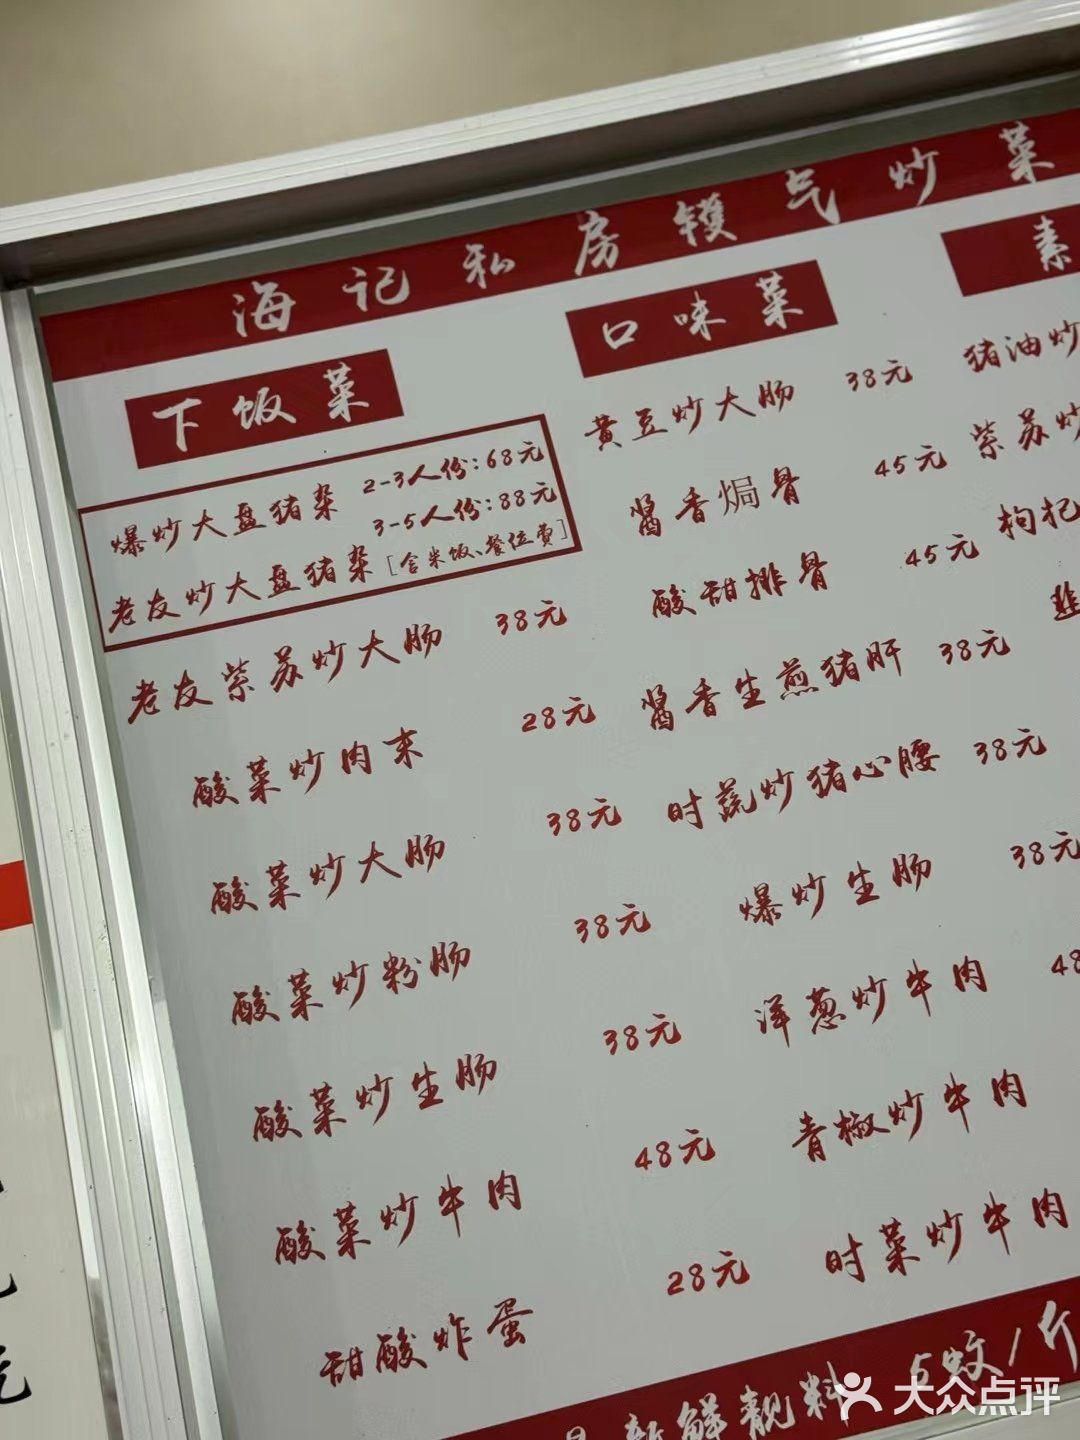 海记私房镬气炒菜
下饭菜
爆炒大盘猪杂 2-3人份:68元
老友炒大盘猪杂 3-5人份:88元
[含米饭、餐位费]
老友紫苏炒大肠 38元
酸菜炒肉末 28元
酸菜炒大肠 38元
酸菜炒粉肠 38元
酸菜炒生肠 38元
酸菜炒牛肉 48元
甜酸炸蛋 28元
口味菜
黄豆炒大肠 38元
酱香焗骨 45元
酸甜排骨 45元
酱香生煎猪肝 38元
时蔬炒猪心腰 38元
爆炒生肠 38元
洋葱炒牛肉 48
青椒炒牛肉
时菜炒牛肉
素
猪油炒
紫苏炒
枸杞
韭
新鲜靓料 5蚊/斤
大众点评